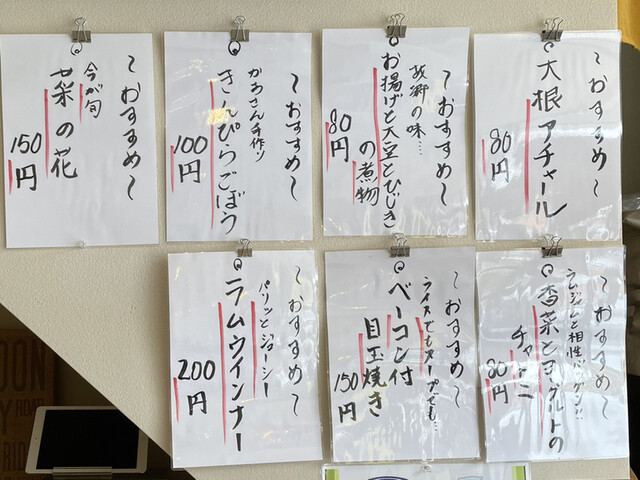 〜おすすめ〜
大根アチャール
80円
〜おすすめ〜
故郷の味…
お揚げと大豆とひじき
の煮物
80円
〜おすすめ〜
かあさん手作り
きんぴらごぼう
100円
〜おすすめ〜
今が旬
菜の花
150円
〜おすすめ〜
ラムジンと相性バツグン!!
香菜とヨーグルトの
チャトニ
80円
〜おすすめ〜
ライスでもスープでも…
ベーコン付
目玉焼き
150円
〜おすすめ〜
パリッとジューシー
ラムウインナー
200円